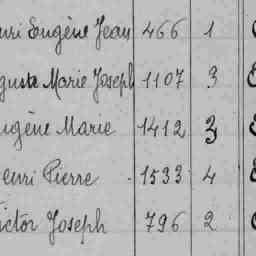 uri Eugène Jean 466 1
guste Marie Joseph 1107 3
ugène Marie 1412 3
enri Pierre 1533 4
ictor Joseph 796 2